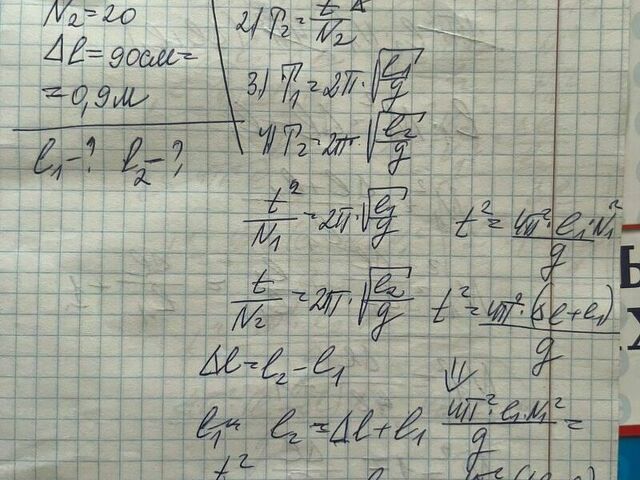 N₂=20
Δl=90см=
=0,9м
l₁-? l₂-?
2) T₂=t/N₂
3) T₁=2π·√(l₁/g)
4) T₂=2π·√(l₂/g)
t²/N₁=2π·√(l₁/g) t²=4π²·l₁·N₁²/g
t/N₂=2π·√(l₂/g) t²=4π²·(Δl+l₁)/g
Δl=l₂-l₁
l₁ l₂=Δl+l₁ 4π²·l₁·N₁²/g=
t²